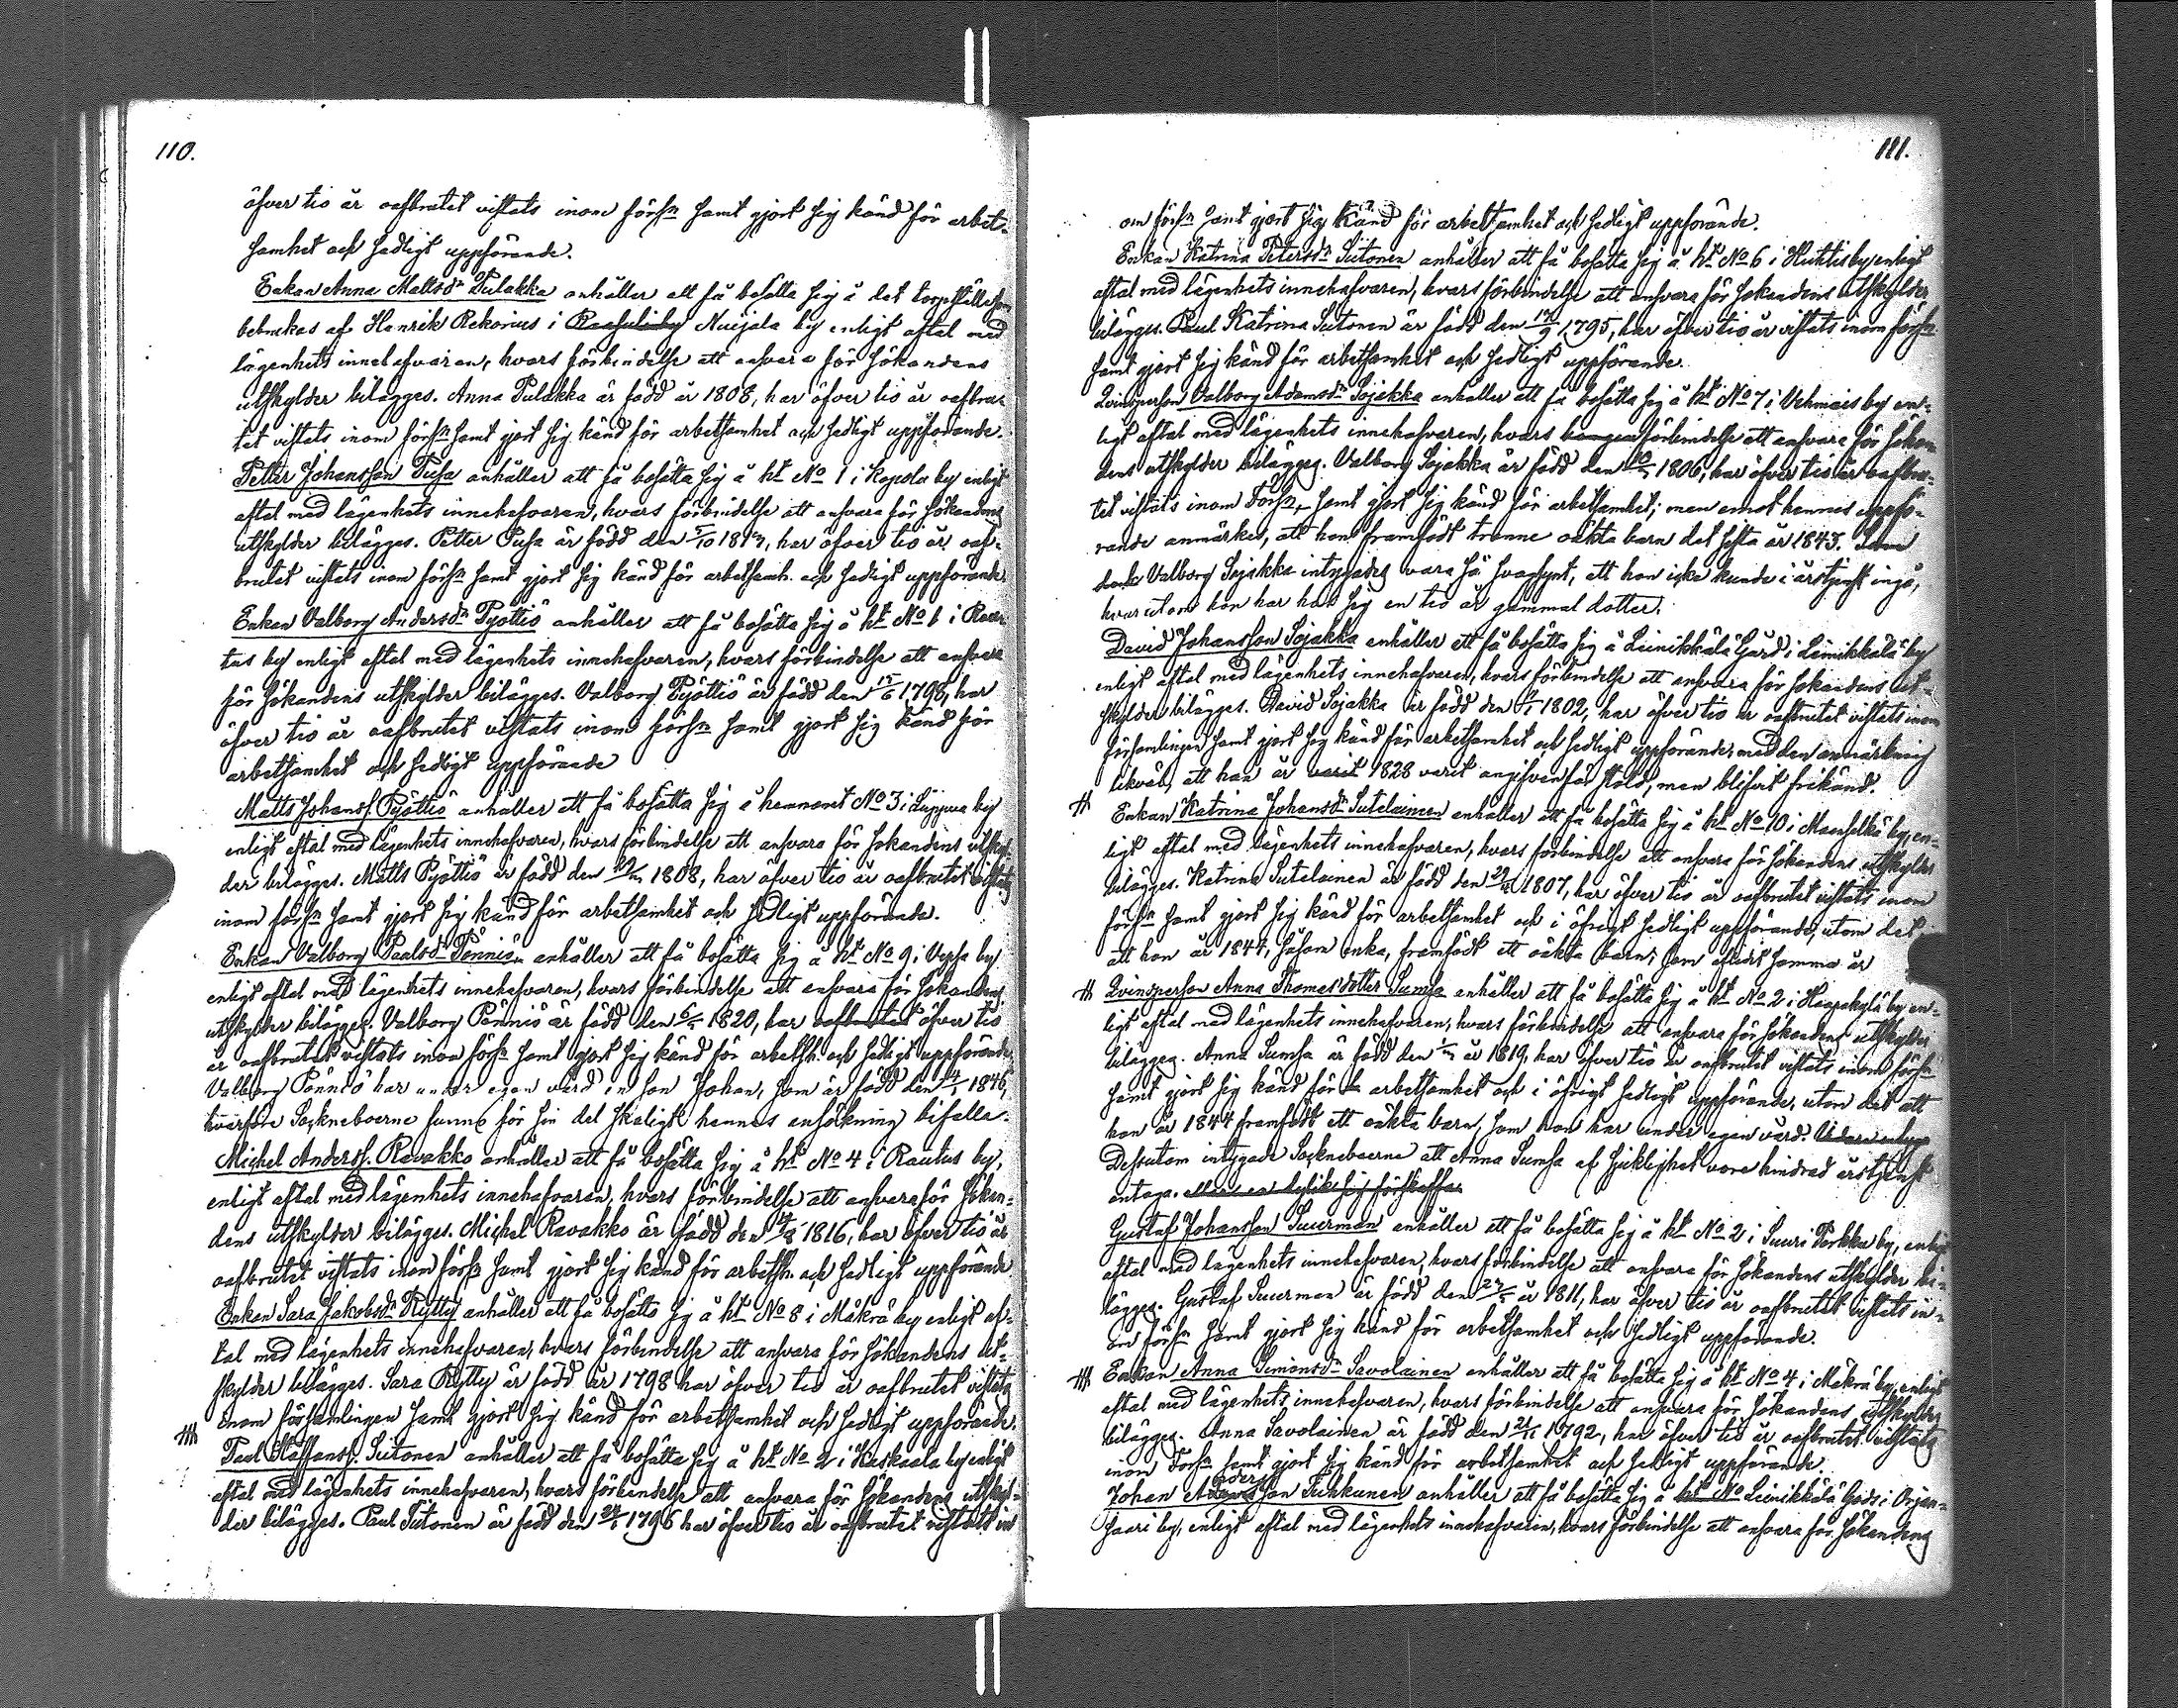 110.
öfver tio år oafbrutet vistats inom förs:n samt gjort sig känd för arbet-
samhet och sedligt uppförande.
Enkan Anna Mattsdr Pulakka anhåller att få bosätta sig å det torpställe som
bebrukas af Henrik Rekorius i Nuijala by enligt aftal med
lägenhets innehafvaren, hvars förbindelse att ansvara för sökandens
utskylder bilägges. Anna Pulakka är född år 1808, har öfver tio år oafbru-
tet vistats inom förs:n samt gjort sig känd för arbetsamhet och sedligt uppförande.
Petter Johansson Pusa anhåller att få bosätta sig å ht No 1 i Kopola by enligt
aftal med lägenhets innehafvaren, hvars förbindelse att ansvara för sökandens
utskylder bilägges. Petter Pusa är född den 5/10 1813, har öfver tio år oaf-
brutet vistats inom förs:n samt gjort sig känd för arbetsamh. och sedligt uppförande
Enkan Valborg Andersdr Pyöttiö anhåller att få bosätta sig å ht No 6 i Rau-
tus by enligt aftal med lägenhets innehafvaren, hvars förbindelse att ansvara
för sökandens utskylder bilägges. Valborg Pyöttiö är född den 15/6 1795, har
öfver tio år oafbrutet vistats inom förs:n samt gjort sig känd för
arbetsamhet och sedligt uppförande
Matts Johanss. Pyöttiö anhåller att få bosätta sig å hemmanet No 3 i by
enligt aftal med lägenhets innehafvaren, hvars förbindelse att ansvara för sökandens utskyl-
der bilägges. Matts Pyöttiö är född den 1808, har öfver tio år oafbrutet vistats
inom förs:n samt gjort sig känd för arbetsamhet och sedligt uppförande.
Enkan Valborg Paalsdr Pönniö anhåller att få bosätta sig å ht No 9 i Vepsa by
enligt aftal med lägenhets innehafvaren, hvars förbindelse att ansvara för sökandens
utskylder bilägges. Valborg Pönniö är född den 1820, har oafbrutet öfver tio
år oafbrutet vistats inom förs:n samt gjort sig känd för arbetsh. och sedligt uppförande,
Valborg Pönniö har under egen vård en son Johan, som är född den 1846,
hvarföre Sockneboerne funno för sin del skäligt hennes ansökning bifalla.
Michel Anderss. Ravakko anhåller att få bosätta sig å ht No 4 i Rautus by,
enligt aftal med lägenhets innehafvaren, hvars förbindelse att ansvara för sökan-
dens utskylder bilägges. Michel Ravakko är född den 1816, har öfver tio år
oafbrutet vistats inom förs:n samt gjort sig känd för arbetsh. och sedligt uppförande
Enkan Sara Jakobsdr Rytty anhåller att få bosätta sig å ht No 8 i Mäkrä by enligt af-
tal med lägenhets innehafvaren, hvars förbindelse att ansvara för sökandens ut-
skylder bilägges. Sara Rytty är född år 1798 har öfver tio år oafbrutet vistats
inom församlingen samt gjort sig känd för arbetsamhet och sedligt uppförande.
Paul Staffanss. Sutonen anhåller att få bosätta sig å ht No 2 i Keskaala by enligt
aftal med lägenhets innehafvaren, hvars förbindelse att ansvara för sökandens utskyl-
der bilägges. Paul Sutonen är född den 1796 har öfver tio år oafbrutet vistats in-
111.
om förs:n samt gjort sig känd för arbetsamhet och sedligt uppförande.
Enkan Katrina Petersdr Sutonen anhåller att få bosätta sig å ht No 6 i Huhtis by enligt
aftal med lägenhets innehafvaren, hvars förbindelse att ansvara för sökandens utskylder
bilägges. Paul Katrina Sutonen är född den 1795, har öfver tio år vistats inom förs:n
samt gjort sig känd för arbetsamhet och sedligt uppförande.
Qvinsperson Valborg Adamsdr Sojakka anhåller att få bosätta sig å ht No 7 i Vehmais by en-
ligt aftal med lägenhets innehafvaren, hvars förbindelse att ansvara för sökan-
dens utskylder bilägges. Valborg Sojakka är född den 1806, har öfver tio år oafbru-
tet vistats inom Förs:n, samt gjort sig känd för arbetsamhet; men emot hennes uppfö-
rande anmärkes, att hon framfödt trenne oäkta barn det sista år 1843.
dock Valborg Sojakka intygades vara så svagsynt, att hon icke kunde i årstjenst ingå,
hvarutom hon har hos sig en tio år gammal dotter.
David Johansson Sojakka anhåller att få bosätta sig å Leinikkälä Gård i Leinikkälä by
enligt aftal med lägenhets innehafvaren, hvars förbindelse att ansvara för sökandens ut-
skylder bilägges. David Sojakka är född den 1802, har öfver tio år oafbrutet vistats inom
församlingen samt gjort sig känd för arbetsamhet och sedligt uppförande, med den anmärkning
likväl, att han år varit 1828 varit angifven för stöld, men blifvit frikänd.
Enkan Katrina Johansdr Sutelainen anhåller att få bosätta sig å ht No 10 i Maanselkä by, en-
ligt aftal med lägenhets innehafvaren, hvars förbindelse att ansvara för sökandens utskylder
bilägges. Katrina Sutelainen är född den 1807, har öfver tio år oafbrutet vistats inom
förs:n samt gjort sig känd för arbetsamhet och i öfrigt sedligt uppförande, utom det
att hon år 1844, såsom enka, framfödt ett oäkta barn, som aflidit samma år
Qvinsperson Anna Thomasdotter Sumsa anhåller att få bosätta sig å ht No 2 i Haapakylä by en-
ligt aftal med lägenhets innehafvaren, hvars förbindelse att ansvara för sökandens utskylder
bilägges. Anna Sumsa är född den år 1819, har öfver tio år oafbrutet vistats inom förs:n
samt gjort sig känd för arbetsamhet och i öfrigt sedligt uppförande, utom det att
hon år 1844 framfödt ett oäkta barn, som hon har under egen vård.
Dessutom intygade Sockneboerne att Anna Sumsa af sjuklighet vore hindrad årstjenst
antaga.
Gustaf Johansson Suurman anhåller att få bosätta sig å ht No 2 i Suuri Porkku by, enligt
aftal med lägenhets innehafvaren, hvars förbindelse att ansvara för sökandens utskylder bi-
lägges. Gustaf Suurman är född den år 1811, har öfver tio år oafbrutet vistats in-
om förs:n samt gjort sig känd för arbetsamhet och sedligt uppförande.
Enkan Anna Simonsdr Savolainen anhåller att få bosätta sig å ht No 4 i Mäkrä by, enligt
aftal med lägenhets innehafvaren, hvars förbindelse att ansvara för sökandens utskylder
bilägges. Anna Savolainen är född den 1792, har öfver tio år oafbrutet vistats
inom Förs:n samt gjort sig känd för arbetsamhet och sedligt uppförande.
Johan Andersson Tuhkunen anhåller att få bosätta sig å ht No Leinikkälä Gods i Orjan-
saari by, enligt aftal med lägenhets innehafvaren, hvars förbindelse att ansvara för sökandens